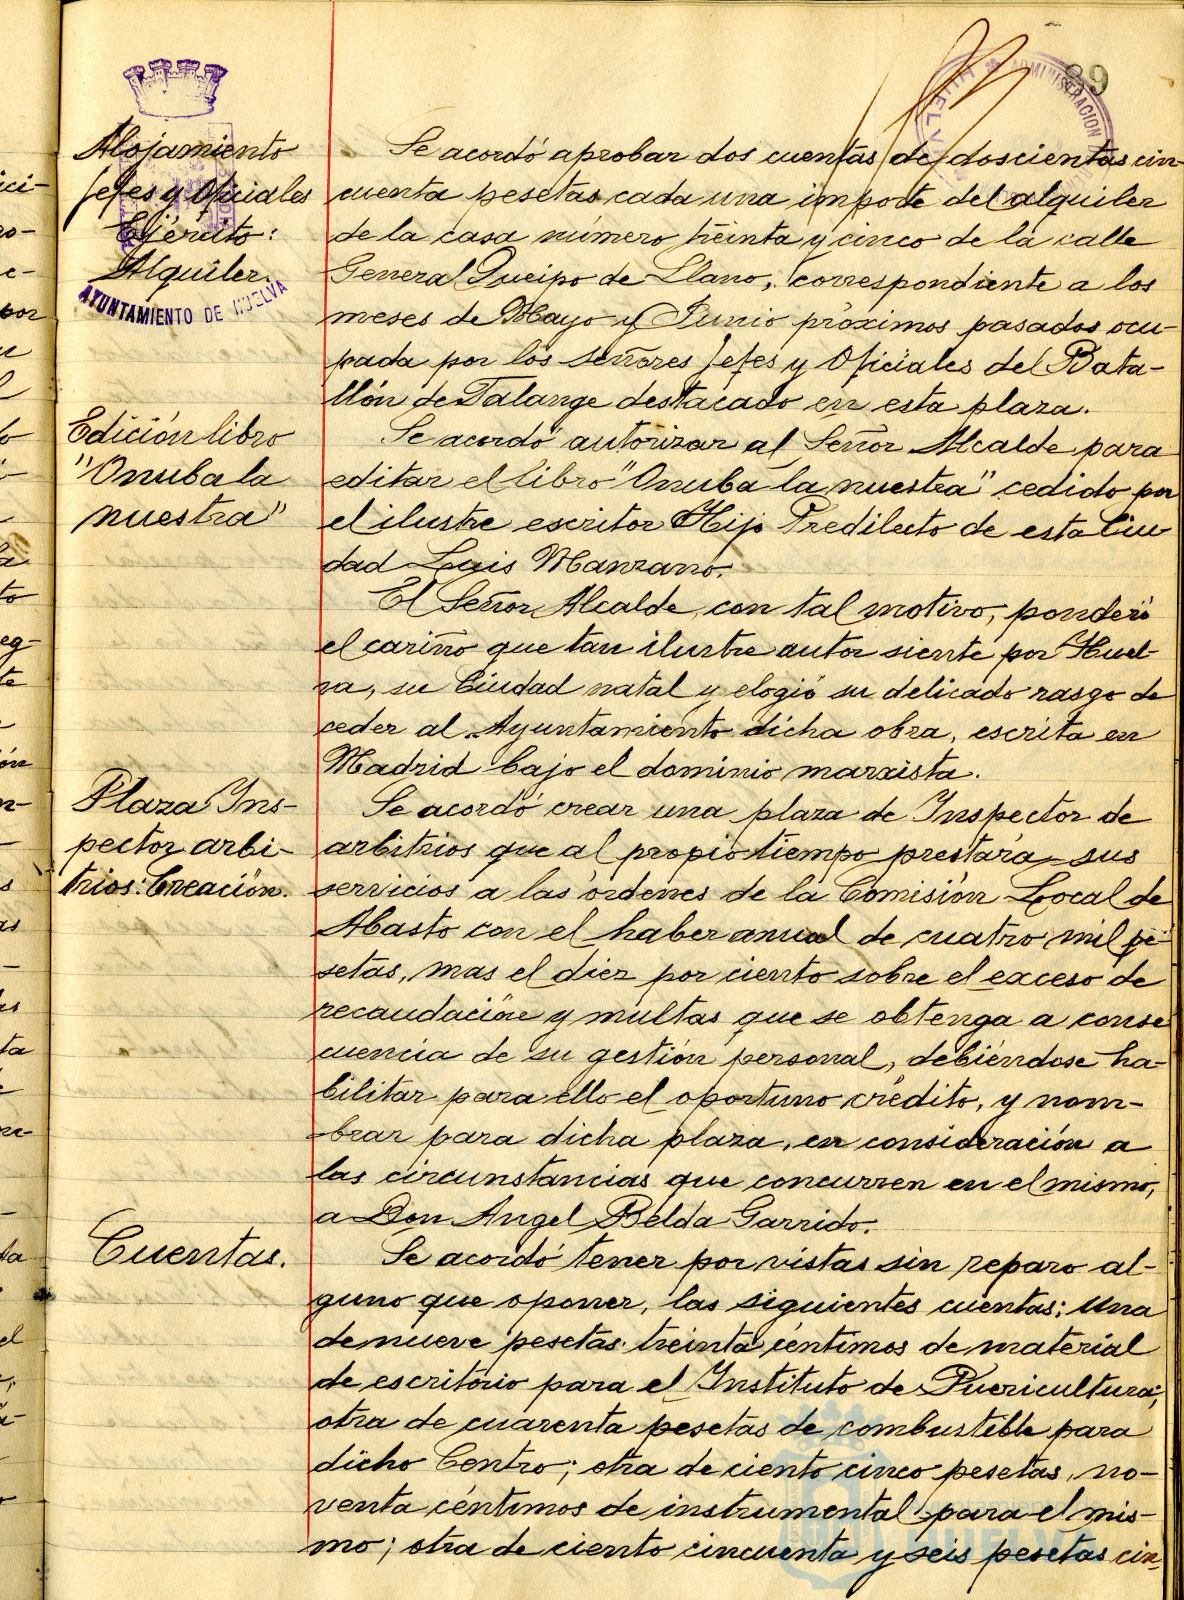 89
ADMINISTRACION
HUELVA
AYUNTAMIENTO DE HUELVA
Alojamiento
Jefes y Oficiales
Ejército:
Alquiler.
Se acordó aprobar dos cuentas de doscientas cin-
cuenta pesetas cada una importe del alquiler
de la casa número treinta y cinco de la calle
General Queipo de Llano, correspondiente a los
meses de Mayo y Junio próximos pasados ocu-
pada por los señores Jefes y Oficiales del Bata-
llón de Talange destacado en esta plaza.
Edición libro
"Onuba la
nuestra"
Se acordó autorizar al Señor Alcalde para
editar el libro "Onuba la nuestra" cedido por
el ilustre escritor Hijo Predilecto de esta Ciu
dad Luis Manzano.
El Señor Alcalde, con tal motivo, ponderó
el cariño que tan ilustre autor siente por Huel-
va, su Ciudad natal y elogió su delicado rasgo de
ceder al Ayuntamiento dicha obra, escrita en
Madrid bajo el dominio marxista.
Plaza Ins-
pector arbi-
trios: Creación.
Se acordó crear una plaza de Inspector de
arbitrios que al propio tiempo prestará sus
servicios a las órdenes de la Comisión Local de
Abasto con el haber anual de cuatro mil pe-
setas, mas el diez por ciento sobre el exceso de
recaudación y multas que se obtenga a conse
cuencia de su gestión personal, debiéndose ha-
bilitar para ello el oportuno crédito, y nom-
brar para dicha plaza, en consideración a
las circunstancias que concurren en el mismo,
a Don Angel Belda Garrido.
Cuentas.
Se acordó tener por vistas sin reparo al-
guno que oponer, las siguientes cuentas: Una
de nueve pesetas treinta céntimos de material
de escritorio para el Instituto de Puericultura;
otra de cuarenta pesetas de combustible para
dicho Centro; otra de ciento cinco pesetas, no-
venta céntimos de instrumental para el mis-
mo; otra de ciento cincuenta y seis pesetas cin-